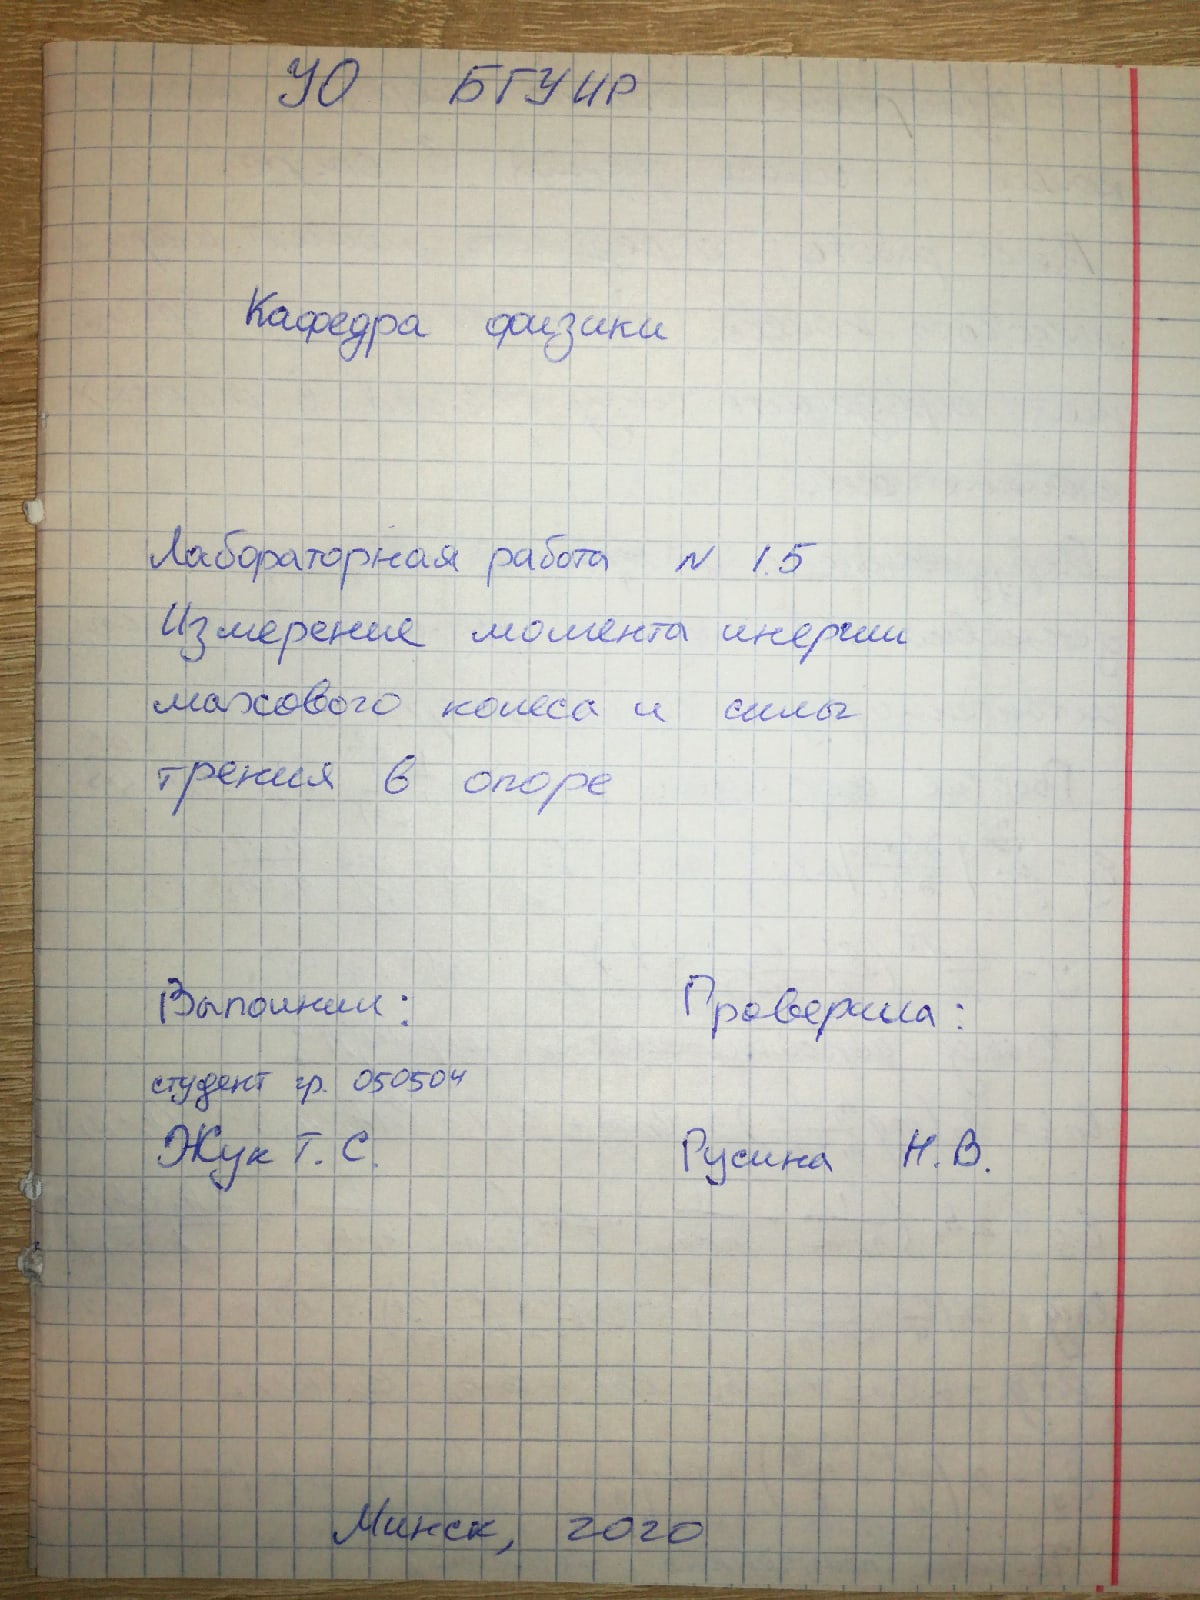 УО БГУИР
Кафедра физики
Лабораторная работа N 1.5
Измерение момента инерции
махового колеса и силы
трения в опоре
Выполнил: Проверила:
студент гр. 050504
Жук Т. С. Русина Н. В.
Минск, 2020